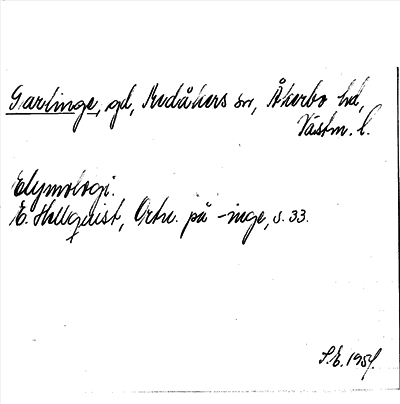 Garlinge, gd, Medåkers sn, Åkerbo hd,
Västm. l.
Etymologi.
E. Hellquist, Ortn. på -inge, s. 33.
S.E. 1954.